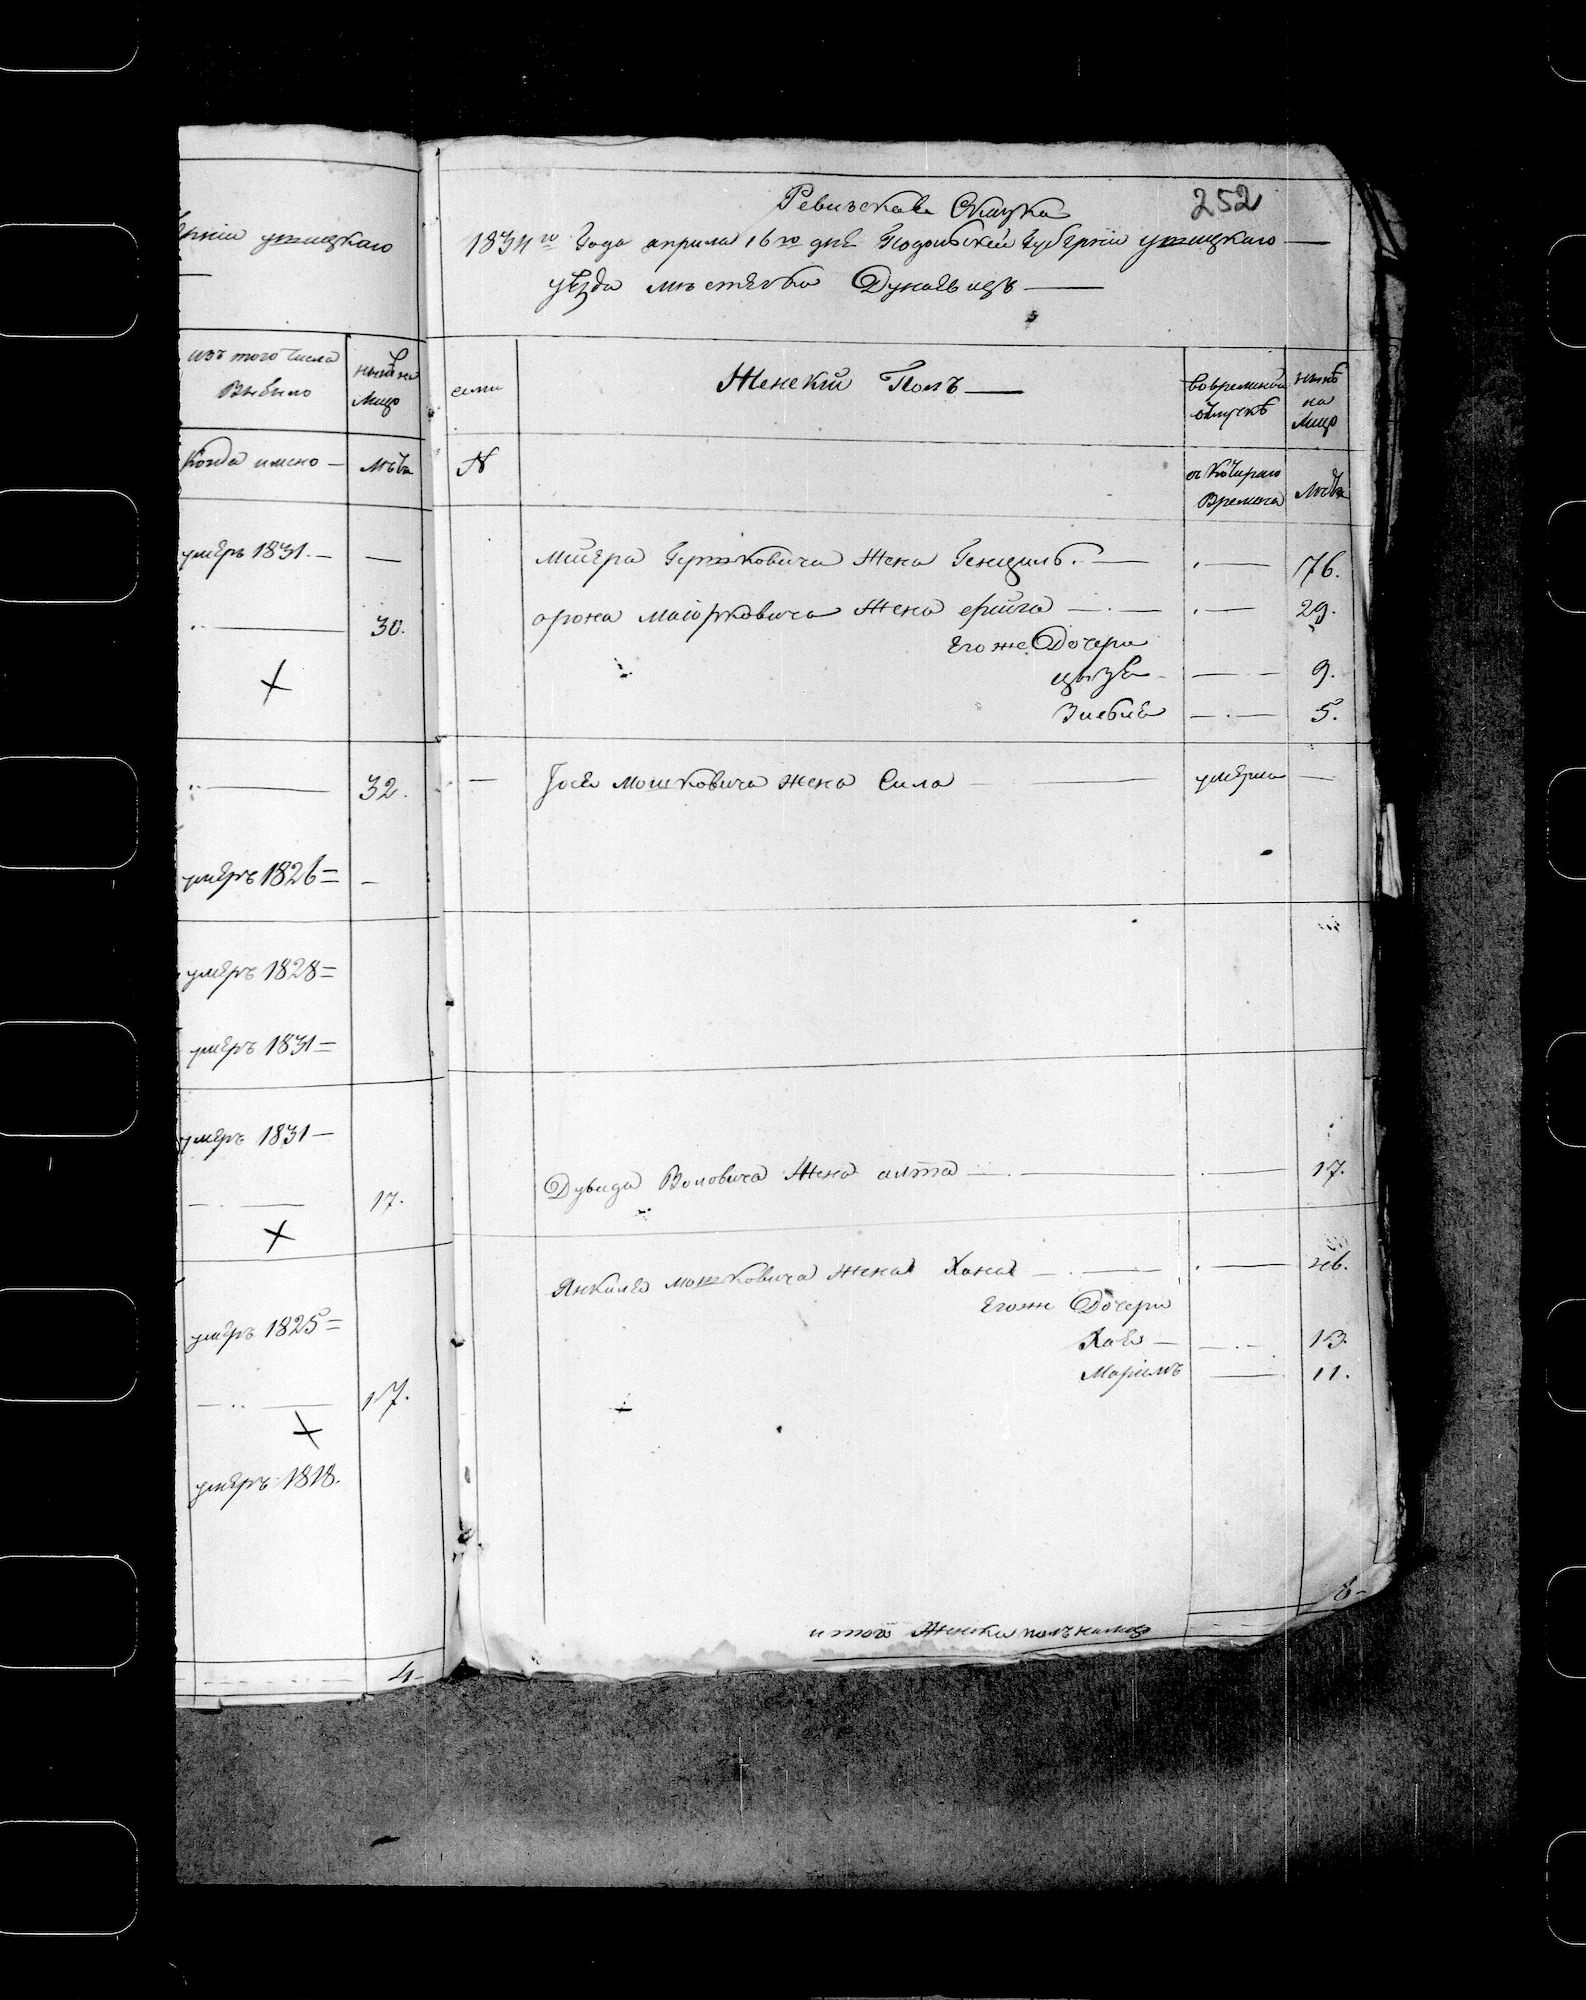 ерніи ушицкаго
изъ того числа
Выбыло
ныне на
лицо
Когда имено —
лета
умеръ 1831. — —
30.
×
32.
умеръ 1826 = —
умеръ 1828 =
умеръ 1831 =
умеръ 1831 —
17.
×
умеръ 1825 =
17.
×
умеръ 1818.
4 —
252
Ревизская Сказка
1834го Года апреля 16го дня Подольской Губерніи ушицкаго —
уезда местечка Дунаевцъ —
семи
Женскій Полъ —
во временной
отлучке
ныне
на
лицо
N
съ котораго
Времени
лета
Жена
76.
арона Маіорковича Жена — 29.
Его же Дочери
9.
5.
— Мошковича жена Сила — умерла —
Дувида Воловича Жена алта — 17.
Янкеля мошковича жена Хана —
Егоже Дочери
Хая — 13.
Маріемъ — 11.
8 —
итого Женска полъ налицо